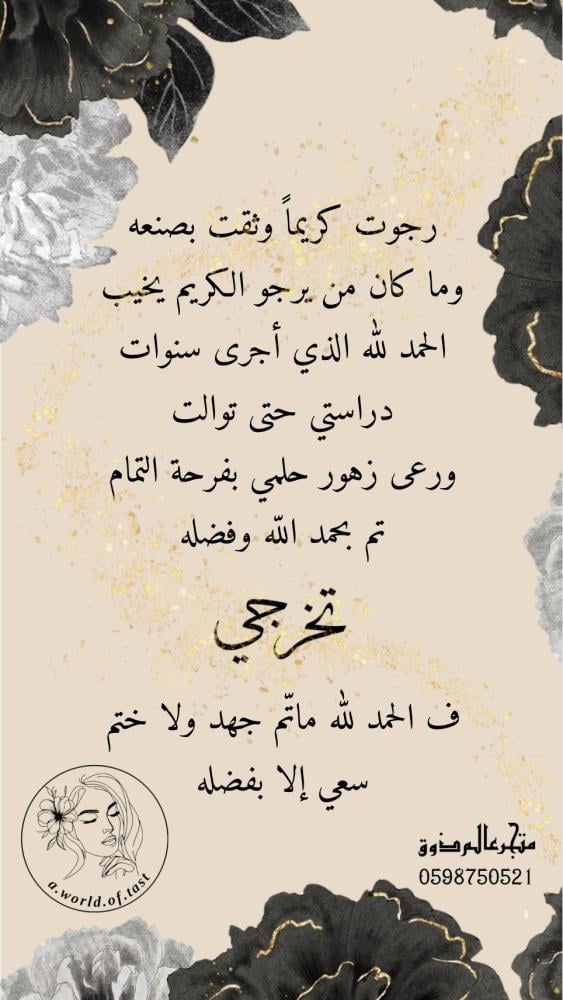 رجوت كريماً وثقت بصنعه
وما كان من يرجو الكريم يخيب
الحمد لله الذي أجرى سنوات
دراستي حتى توالت
ورعى زهور حلمي بفرحة التمام
تم بحمد اللّه وفضله
تخرجي
ف الحمد لله ماتّم جهد ولا ختم
سعي إلا بفضله
متجر عالم ذوق
0598750521
a.world.of.tast